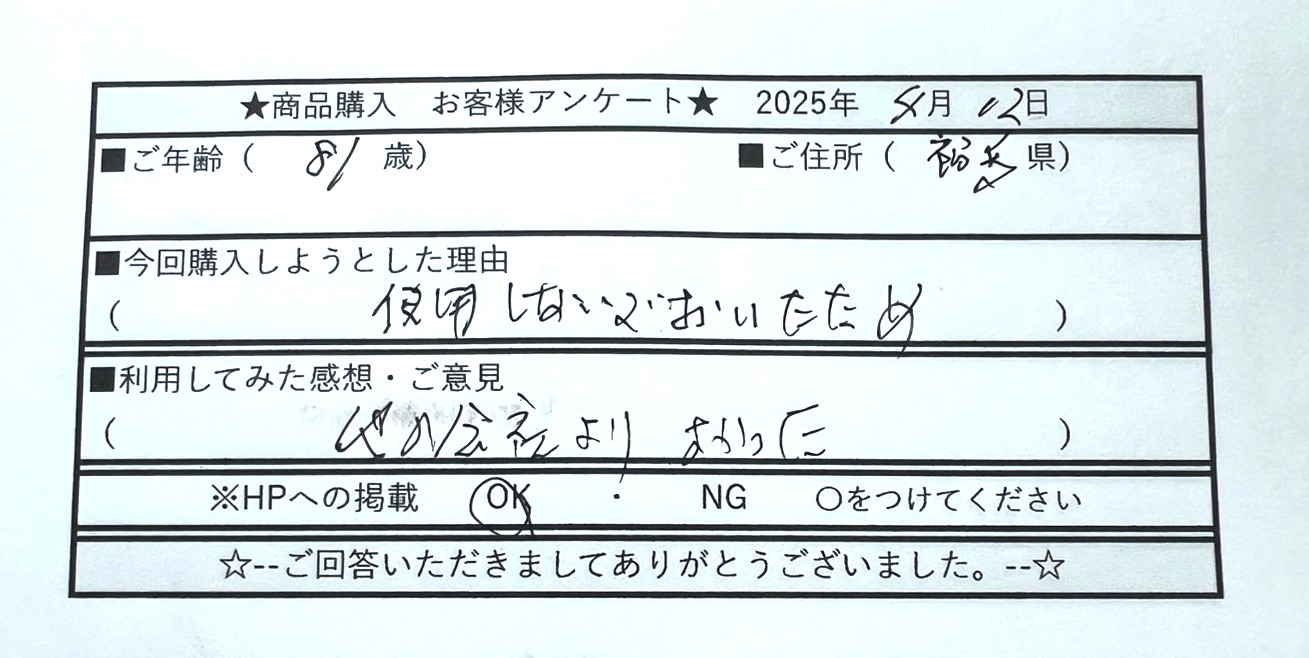 ★商品購入 お客様アンケート★ 2025年 8月 12日
■ご年齢 ( 81 歳)
■ご住所 ( 福島 県)
■今回購入しようとした理由
( 使用しないでおいたため )
■利用してみた感想・ご意見
( 他の会社より よかった )
※HPへの掲載 OK ・ NG ○をつけてください
☆--ご回答いただきましてありがとうございました。--☆